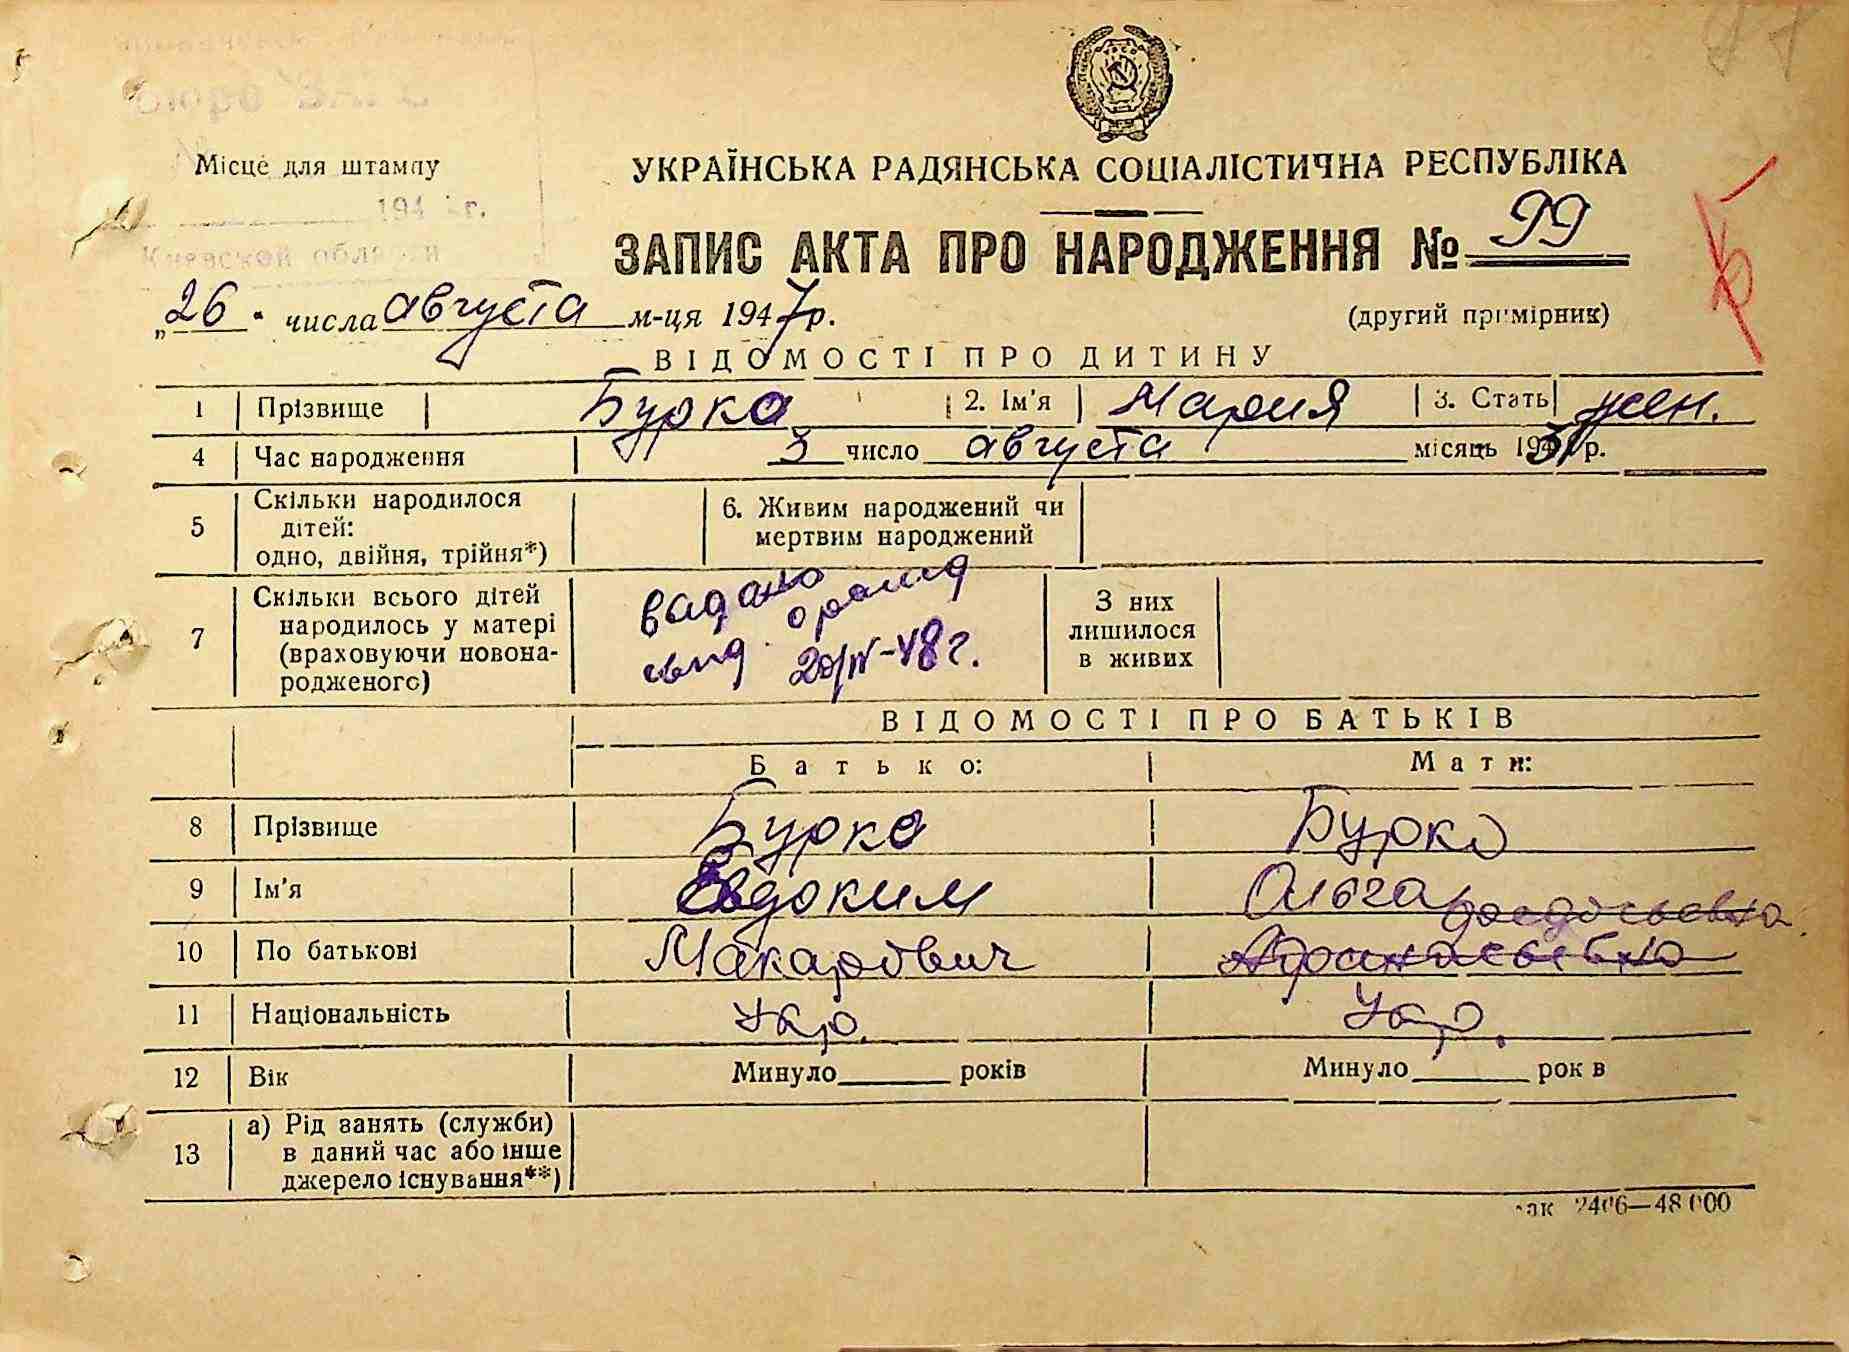 бюро ЗАГС
Місце для штампу
194 г.
Киевской области
УКРАЇНСЬКА РАДЯНСЬКА СОЦІАЛІСТИЧНА РЕСПУБЛІКА
ЗАПИС АКТА ПРО НАРОДЖЕННЯ № 99
„26" числа августа м-ця 1947 р.
(другий примірник)
ВІДОМОСТІ ПРО ДИТИНУ
1 Прізвище Бурка 2. Ім'я Мария 3. Стать жен.
4 Час народження 3 число августа місяць 19 р.
5 Скільки народилося дітей: одно, двійня, трійня*) 6. Живим народжений чи мертвим народжений
7 Скільки всього дітей народилось у матері (враховуючи новонародженого) З них лишилося в живих
видано
свид. 20/IV-48 г.
ВІДОМОСТІ ПРО БАТЬКІВ
Батько: Мати:
8 Прізвище Бурка Бурка
9 Ім'я Евдоким Ольга
10 По батькові Макарович Афанасьевна
11 Національність Укр. Укр.
12 Вік Минуло років Минуло рок в
13 а) Рід занять (служби) в даний час або інше джерело існування**)
зак 2406—48 000